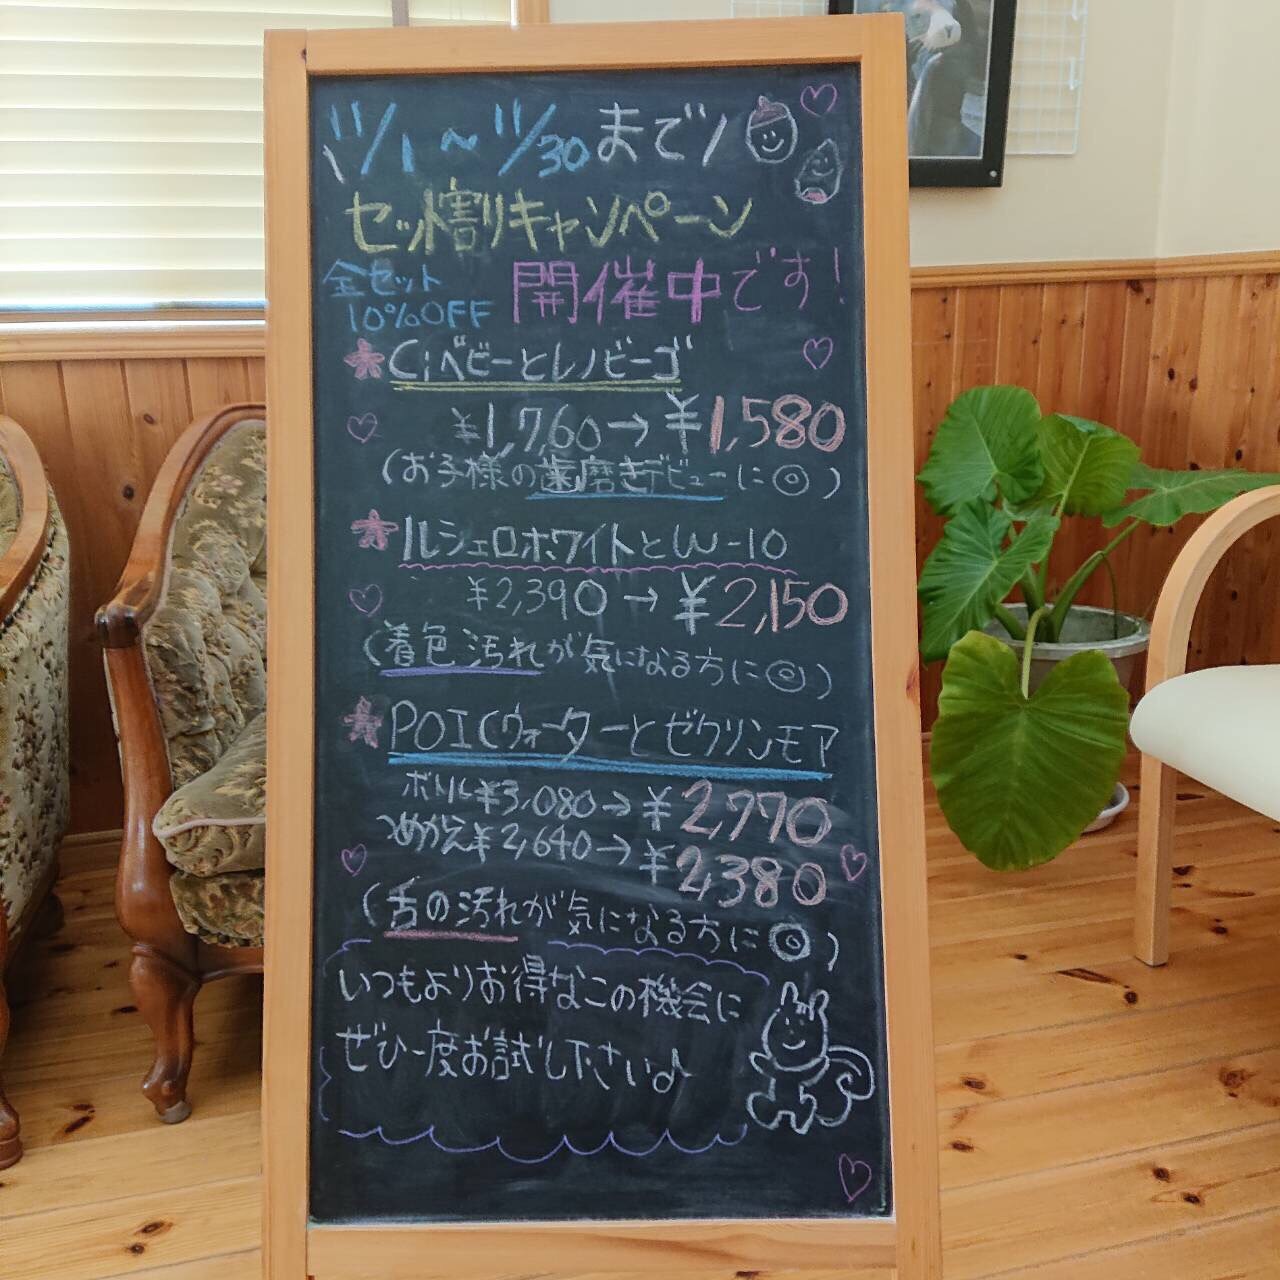 11/1～11/30まで！
セット割りキャンペーン
全セット
10%OFF
開催中です！
Ciベビーとレノビーゴ
¥1,760→¥1,580
（お子様の歯磨きデビューに◎）
ルシェロホワイトとW-10
¥2,390→¥2,150
（着色汚れが気になる方に◎）
POICウォーターとゼクリンモア
ボトル¥3,080→¥2,770
つめかえ¥2,640→¥2,380
（舌の汚れが気になる方に◎）
いつもよりお得なこの機会に
ぜひ一度お試し下さい♪